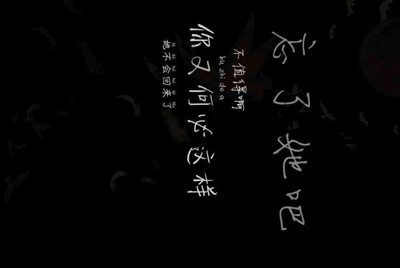 忘了她吧
不值得啊
bu zhi de a
你又何必这样
她不会回来了